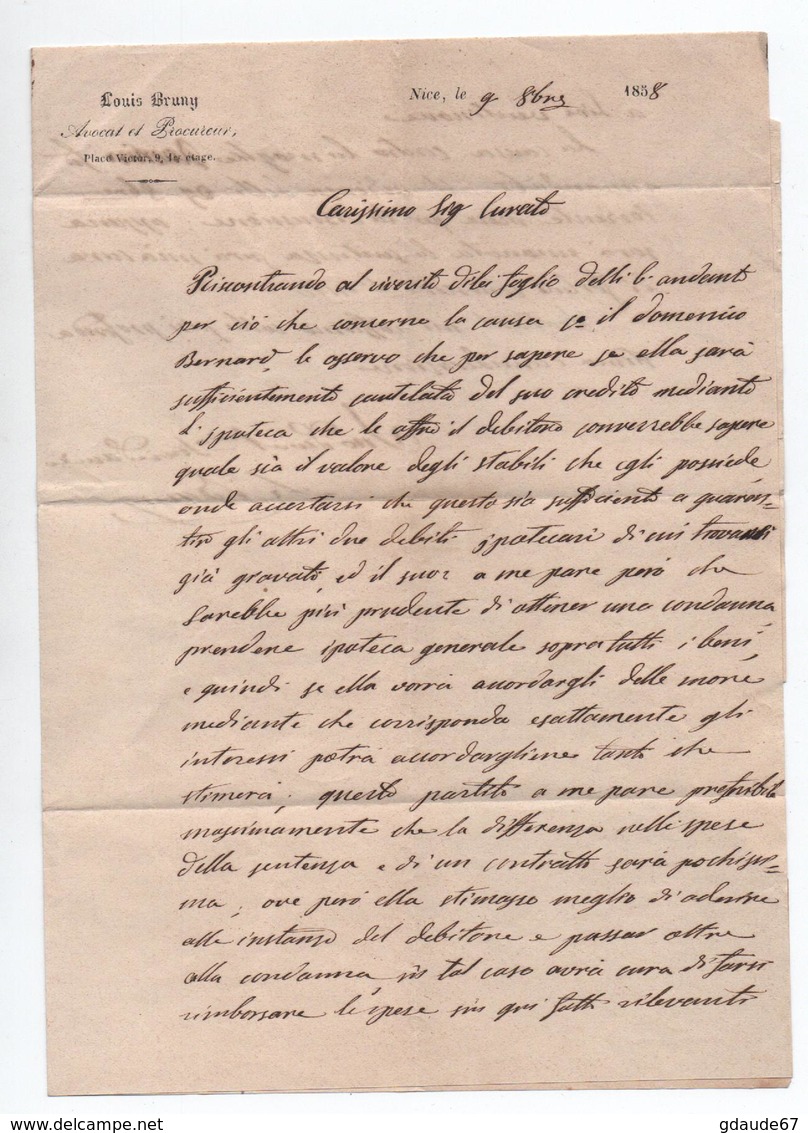 Louis Bruny
Avocat et Procureur,
Place Victor, 9, 1er étage.
Nice, le 9 8bre 1858
Carissimo Sig Curato
Riscontrando al riverito di lei foglio delli 6. andante
per ciò che conserne la causa co il domenico
Bernard, le osservo che per sapere se ella sarà
sufficientemente cautelato del suo credito mediante
l'ipoteca che le offre il debitore converrebbe sapere
quale sia il valore degli stabili che egli possiede,
onde accertarsi che questo sia sufficiente a guaren=
tire gli altri due debiti ipotecari di cui trovansi
già gravati, ed il suo: a me pare però che
sarebbe più prudente di ottener una condanna,
prendere ipoteca generale sopra tutti i beni,
e quindi se ella vorrà accordargli delle more
mediante che corrisponda esattamente gli
interessi potrà accordargliene tanto che
stimerà; questo partito a me pare preferibile
massimamente che la differenza nelle spese
della sentenza e di un contratto sarà pochissi=
ma; ove però ella stimasse meglio di aderire
alle instanze del debitore e passar oltre
alla condanna, in tal caso avrà cura di farsi
rimborsare le spese sin qui fatte rilevanti
gdaude67